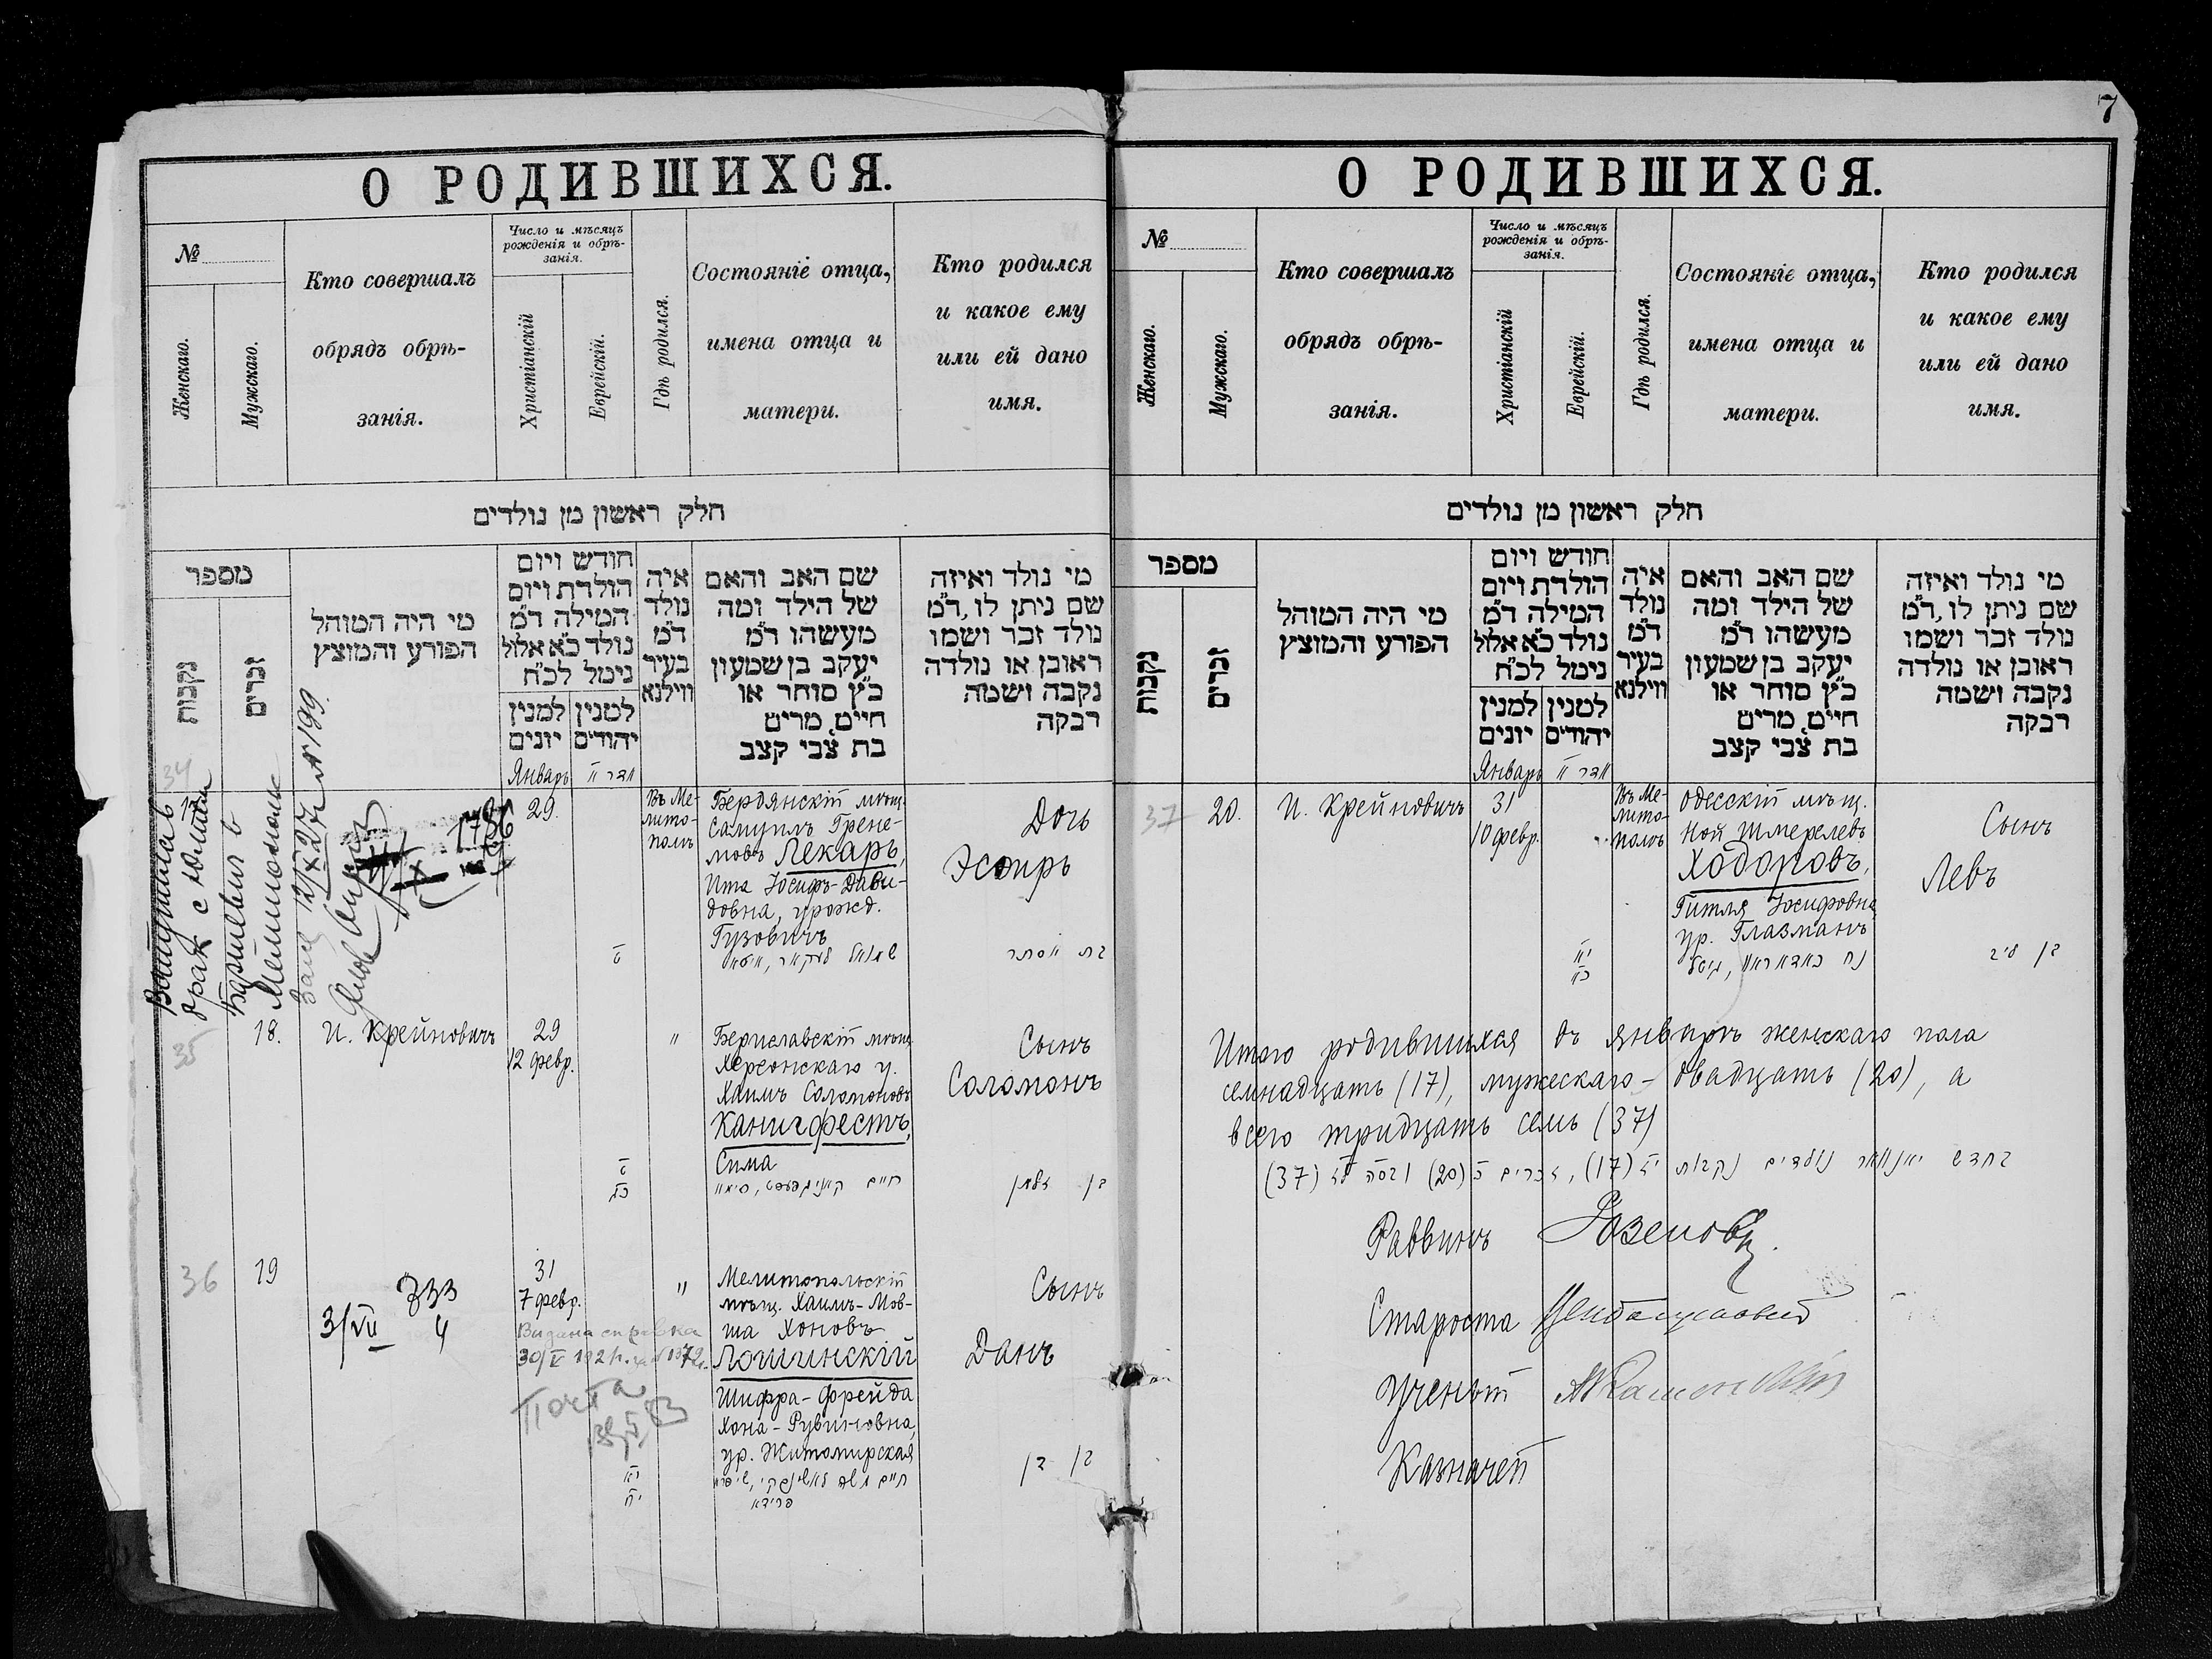 7
О РОДИВШИХСЯ.
№
Женскаго.
Мужскаго.
Кто совершалъ
обрядъ обрѣ-
занія.
Число и мѣсяцъ
рожденія и обрѣ-
занія.
Христіанскій
Еврейскій.
Гдѣ родился.
Состояніе отца,
имена отца и
матери.
Кто родился
и какое ему
или ей дано
имя.
חלק ראשון מן נולדים
מספר
נקבות
זכרים
מי היה המוהל
הפורע והמוצץ
חודש ויום
הולדת ויום
המילה ד״מ
נולד כ״א אלול
נימל לכ״ח
למנין יונים
למנין יהודים
איה
נולד
ד״מ
בעיר
ווילנא
שם האב והאם
של הילד ומה
מעשהו ד״מ
יעקב בן שמעון
כ״ץ סוחר או
חיים, מרים
בת צבי קצב
מי נולד ואיזה
שם ניתן לו, ד״מ
נולד זכר ושמו
ראובן או נולדה
נקבה ושמה
רבקה
Январь
34
17
Вступила в
брак с
Мелитополе
12/X 27 г. № 199
1786
29.
Въ Ме-
лито-
полѣ
Бердянскій мѣщ.
Самуилъ
Лекарь,
Ита Іосифъ-Дави-
довна, урожд.
Гузовичъ
Дочь
Эсѳирь
בת אסתר
35
18.
И. Крейновичъ
29
12 февр.
"
Бериславскій мѣщ.
Херсонскаго у.
Хаимъ Соломоновъ
Канигфестъ,
Сима
Сынъ
Соломонъ
36
19
333
4
3/VII
31
7 февр.
Видана справка
30/V
Почта
"
Мелитопольскій
мѣщ. Хаимъ-Мов-
ша Хоновъ
Лошинскій
Шифра-Фрейда
Хона-Рувиновна,
ур. Житомирская
פריידא
Сынъ
Данъ
בן דן
О РОДИВШИХСЯ.
№
Женскаго.
Мужскаго.
Кто совершалъ
обрядъ обрѣ-
занія.
Число и мѣсяцъ
рожденія и обрѣ-
занія.
Христіанскій
Еврейскій.
Гдѣ родился.
Состояніе отца,
имена отца и
матери.
Кто родился
и какое ему
или ей дано
имя.
חלק ראשון מן נולדים
מספר
נקבות
זכרים
מי היה המוהל
הפורע והמוצץ
חודש ויום
הולדת ויום
המילה ד״מ
נולד כ״א אלול
נימל לכ״ח
למנין יונים
למנין יהודים
איה
נולד
ד״מ
בעיר
ווילנא
שם האב והאם
של הילד ומה
מעשהו ד״מ
יעקב בן שמעון
כ״ץ סוחר או
חיים, מרים
בת צבי קצב
מי נולד ואיזה
שם ניתן לו, ד״מ
נולד זכר ושמו
ראובן או נולדה
נקבה ושמה
רבקה
Январь
37
20.
И. Крейновичъ
31
10 февр.
Въ Ме-
лито-
полѣ
Одесскій мѣщ.
Ной Шмерелевъ
Ходоровъ,
Гитля Іосифовна
ур. Глазманъ
Сынъ
Левъ
בן ליב
Итого родившихся въ январѣ женскаго пола
семнадцать (17), мужескаго - двадцать (20), а
всего тридцать семь (37)
בחדש יאנואר נולדים נקבות י״ז (17), זכרים כ (20) ובסה לז (37)
Раввинъ
Староста
Ученый
Казначей